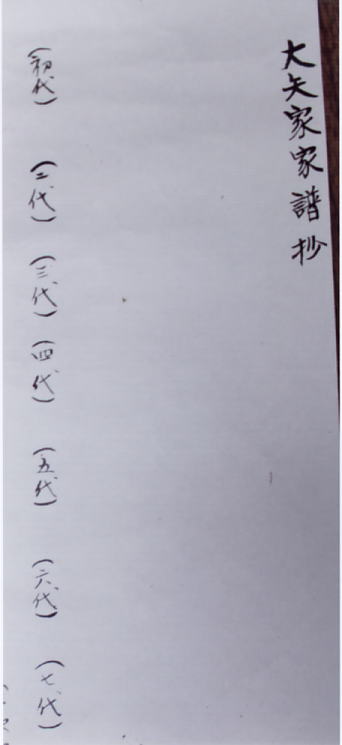 大矢家家譜抄
(初代) (二代) (三代) (四代) (五代) (六代) (七代)